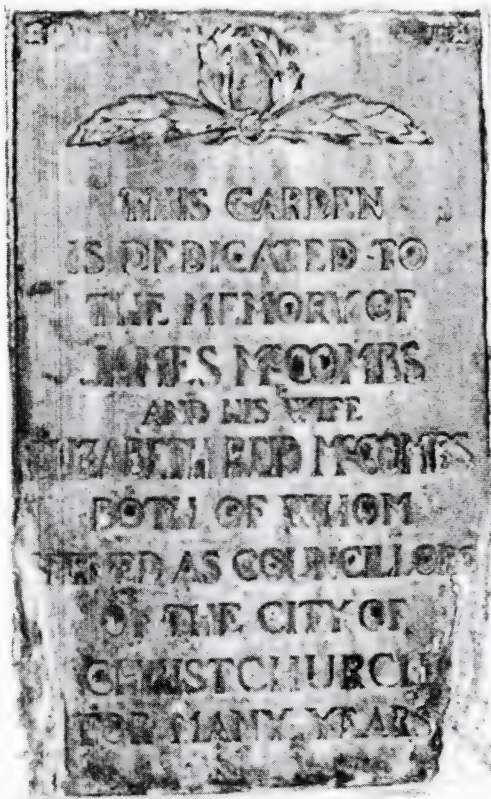 THIS GARDEN
IS DEDICATED TO
THE MEMORY OF
JAMES McCOMBS
AND HIS WIFE
ELIZABETH REID McCOMBS
BOTH OF WHOM
SERVED AS COUNCILLORS
OF THE CITY OF
CHRISTCHURCH
FOR MANY YEARS